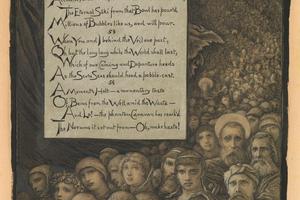 The Eternal Sáki from that Bowl has pour'd
Millions of Bubbles like us, and will pour.
When You and I behind the Veil are past,
Oh but the long long while the World shall last,
Which of our Coming and Departure heeds
As the Sev'n Seas should heed a pebble-cast.
A Moment's Halt — a momentary taste
Of Being from the Well amid the Waste —
And Lo! — the phantom Caravan has reach'd
The Nothing it set out from — Oh, make haste!